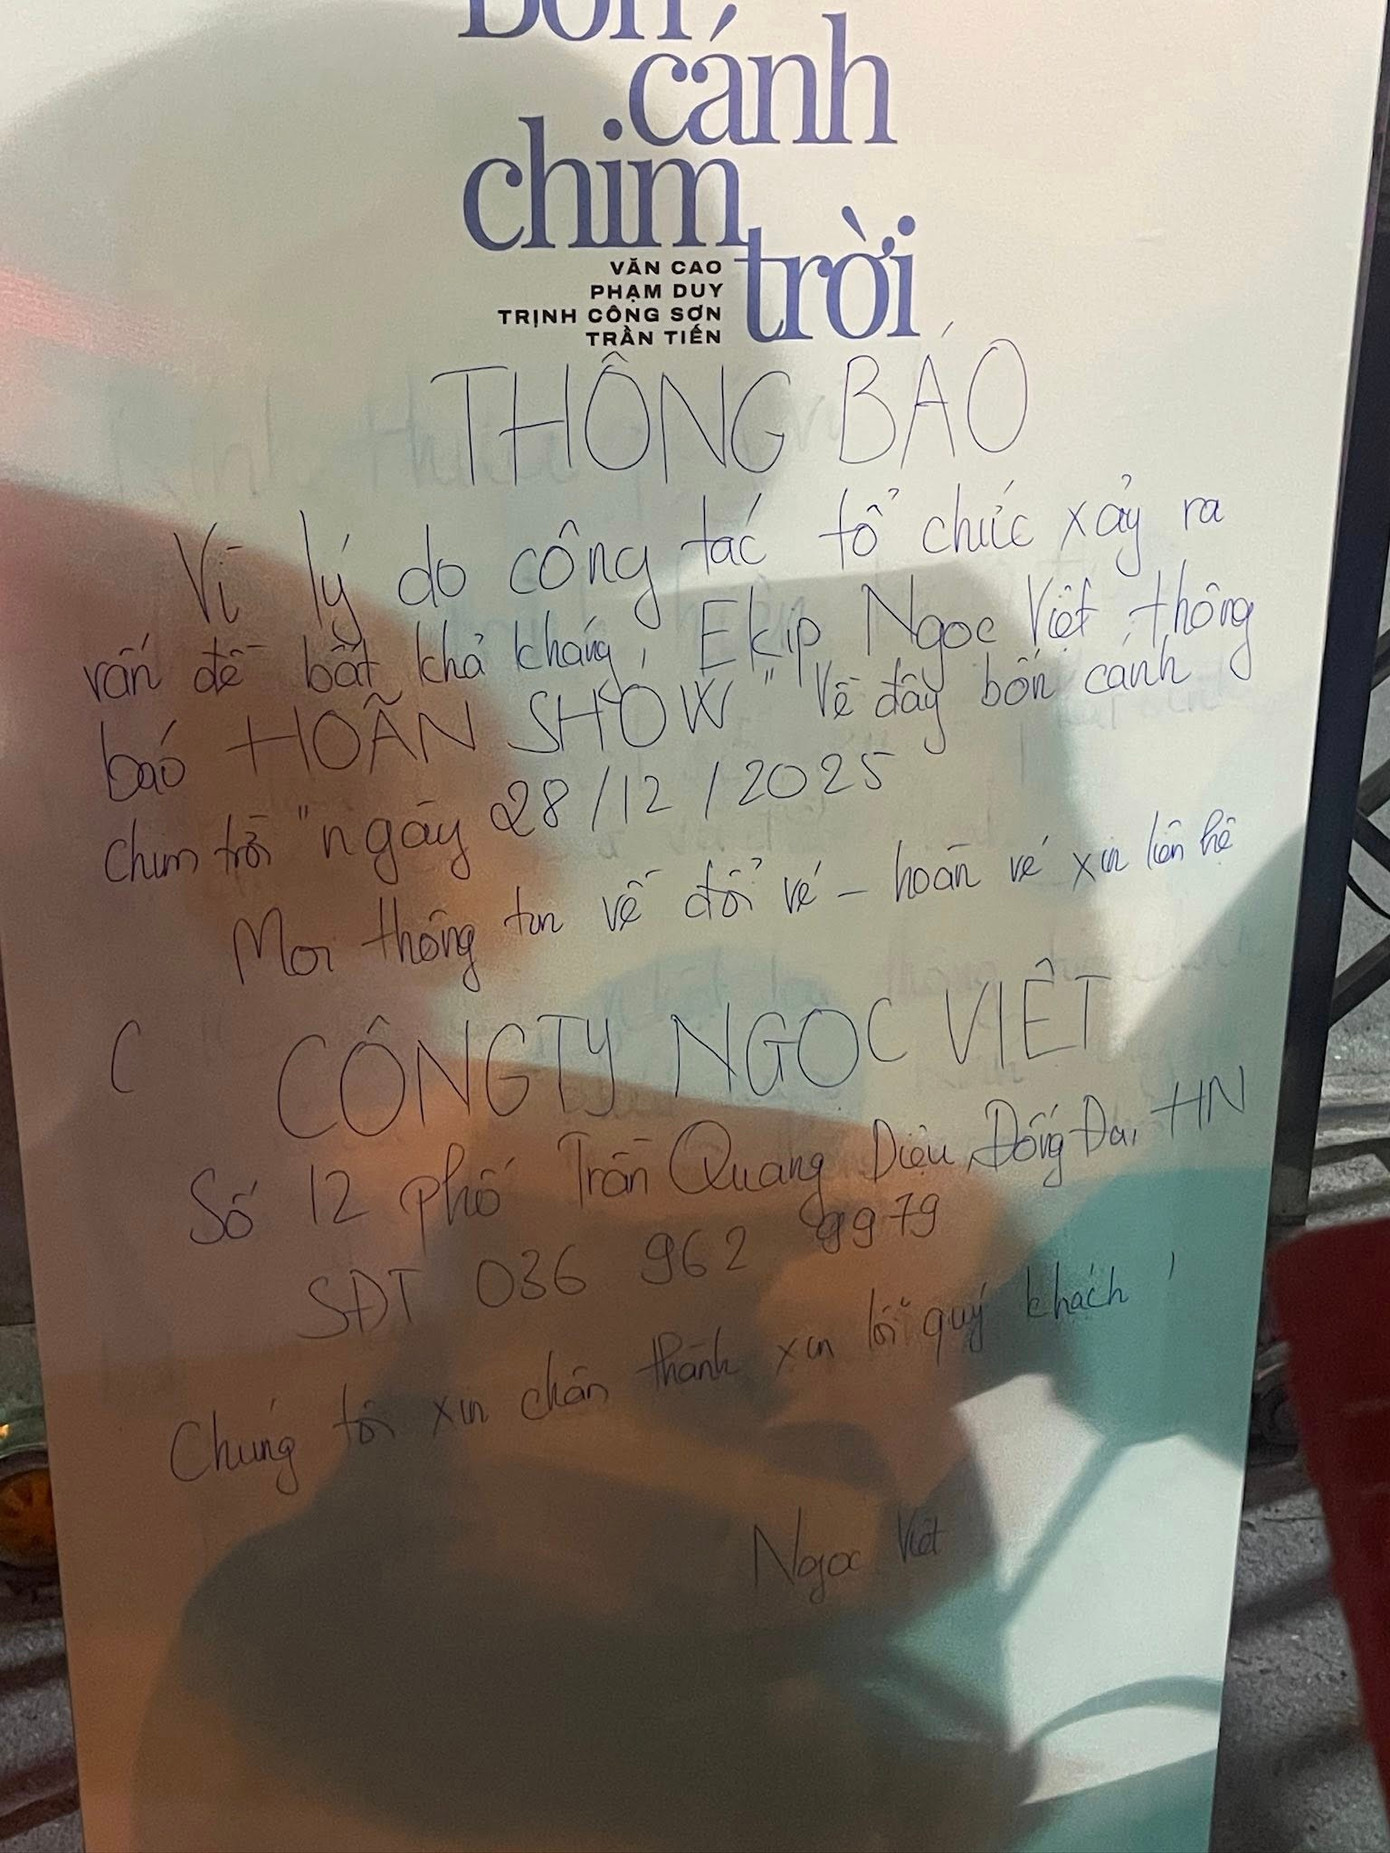 Bốn
cánh
chim
trời
VĂN CAO
PHẠM DUY
TRỊNH CÔNG SƠN
TRẦN TIẾN
THÔNG BÁO
Vì lý do công tác tổ chức xảy ra
vấn đề bất khả kháng, Ekip Ngọc Việt thông
báo HOÃN SHOW "Về đây bốn cánh
chim trời" ngày 28/12/2025
Mọi thông tin về đổi vé - hoàn vé xin liên hệ
C CÔNG TY NGỌC VIỆT
Số 12 phố Trần Quang Diệu, Đống Đa, HN
SĐT 036 962 9979
Chúng tôi xin chân thành xin lỗi quý khách!
Ngọc Việt